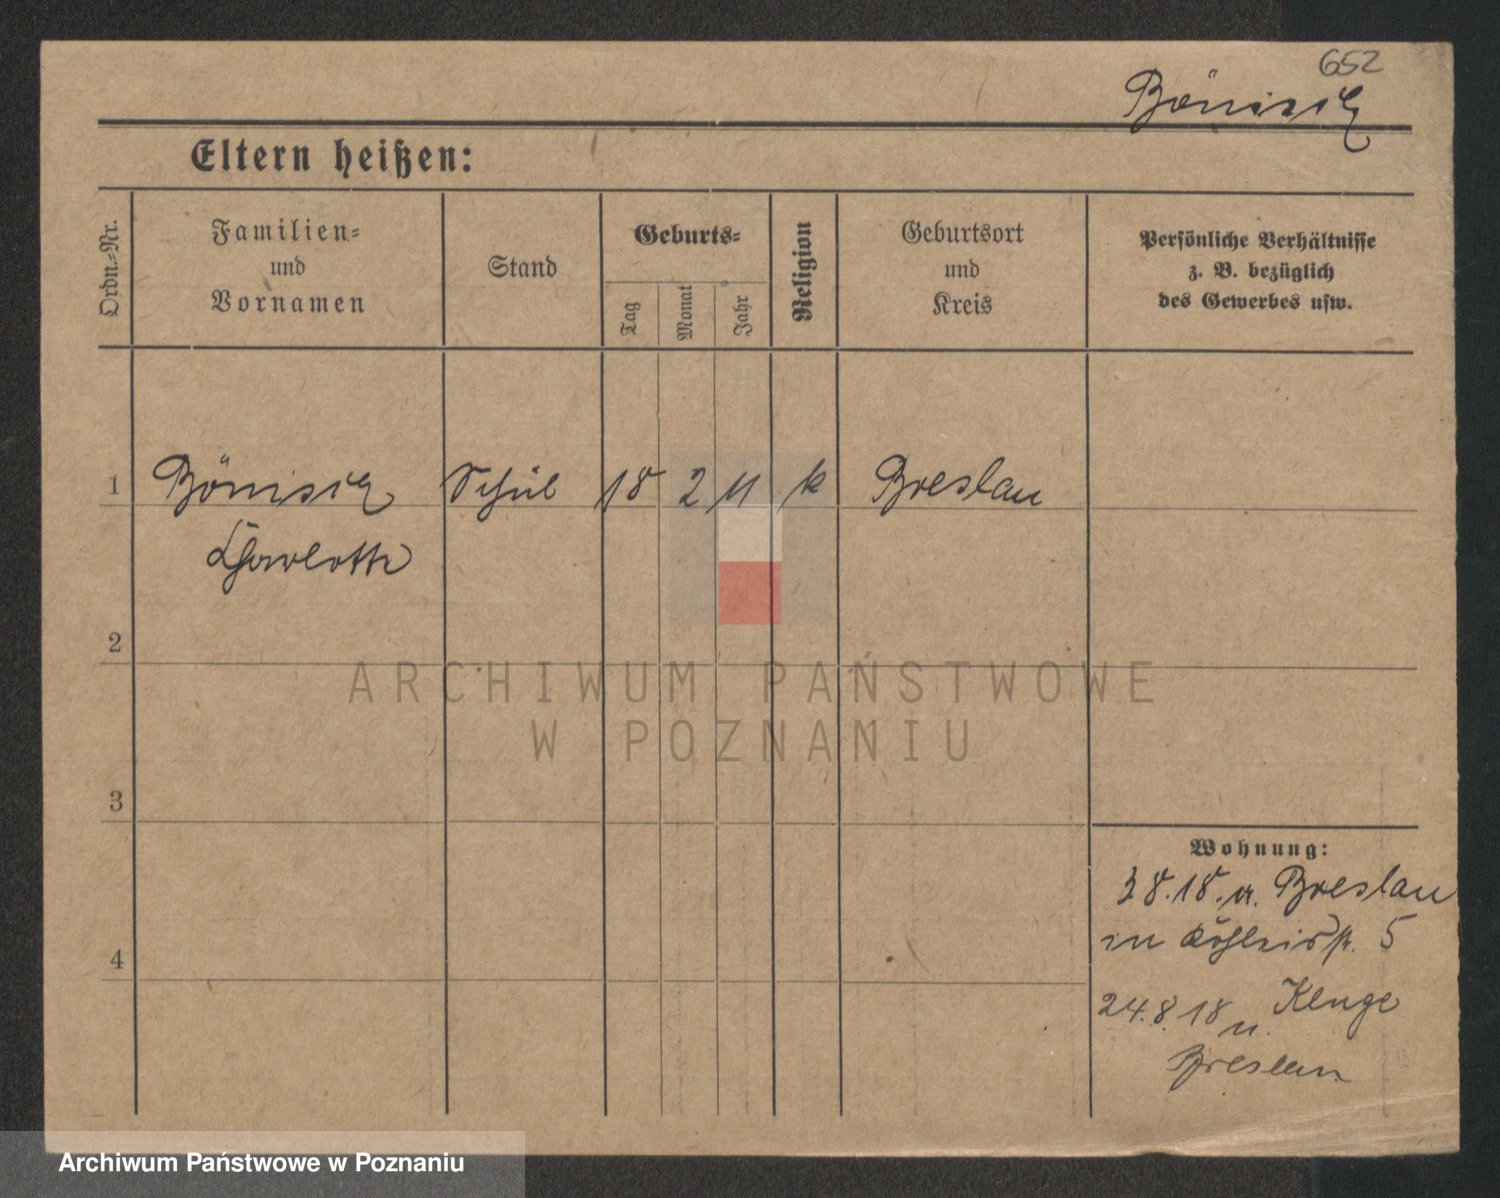 652
Bönisch
Eltern heißen:
Ordn.-Nr.
Familien-
und
Vornamen
Stand
Geburts-
Tag
Monat
Jahr
Religion
Geburtsort
und
Kreis
Persönliche Verhältnisse
z. B. bezüglich
des Gewerbes usw.
1 Bönisch Schül 18 2 11 k Breslau
Charlotte
2
ARCHIWUM PAŃSTWOWE
W POZNANIU
3
Wohnung:
8.18. Breslau
in 5
4
24.8.18 Kluge
n.
Breslau
Archiwum Państwowe w Poznaniu